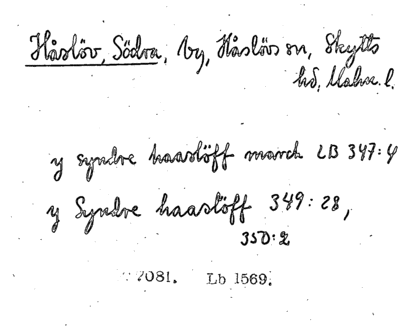 Håslöv, Södra, by, Håslövs sn, Skytts
hd, Malm. l.
y syndre haaslöff march LB 347:4
y Syndre haaslöff 349:28,
350:2
7081. Lb 1569.